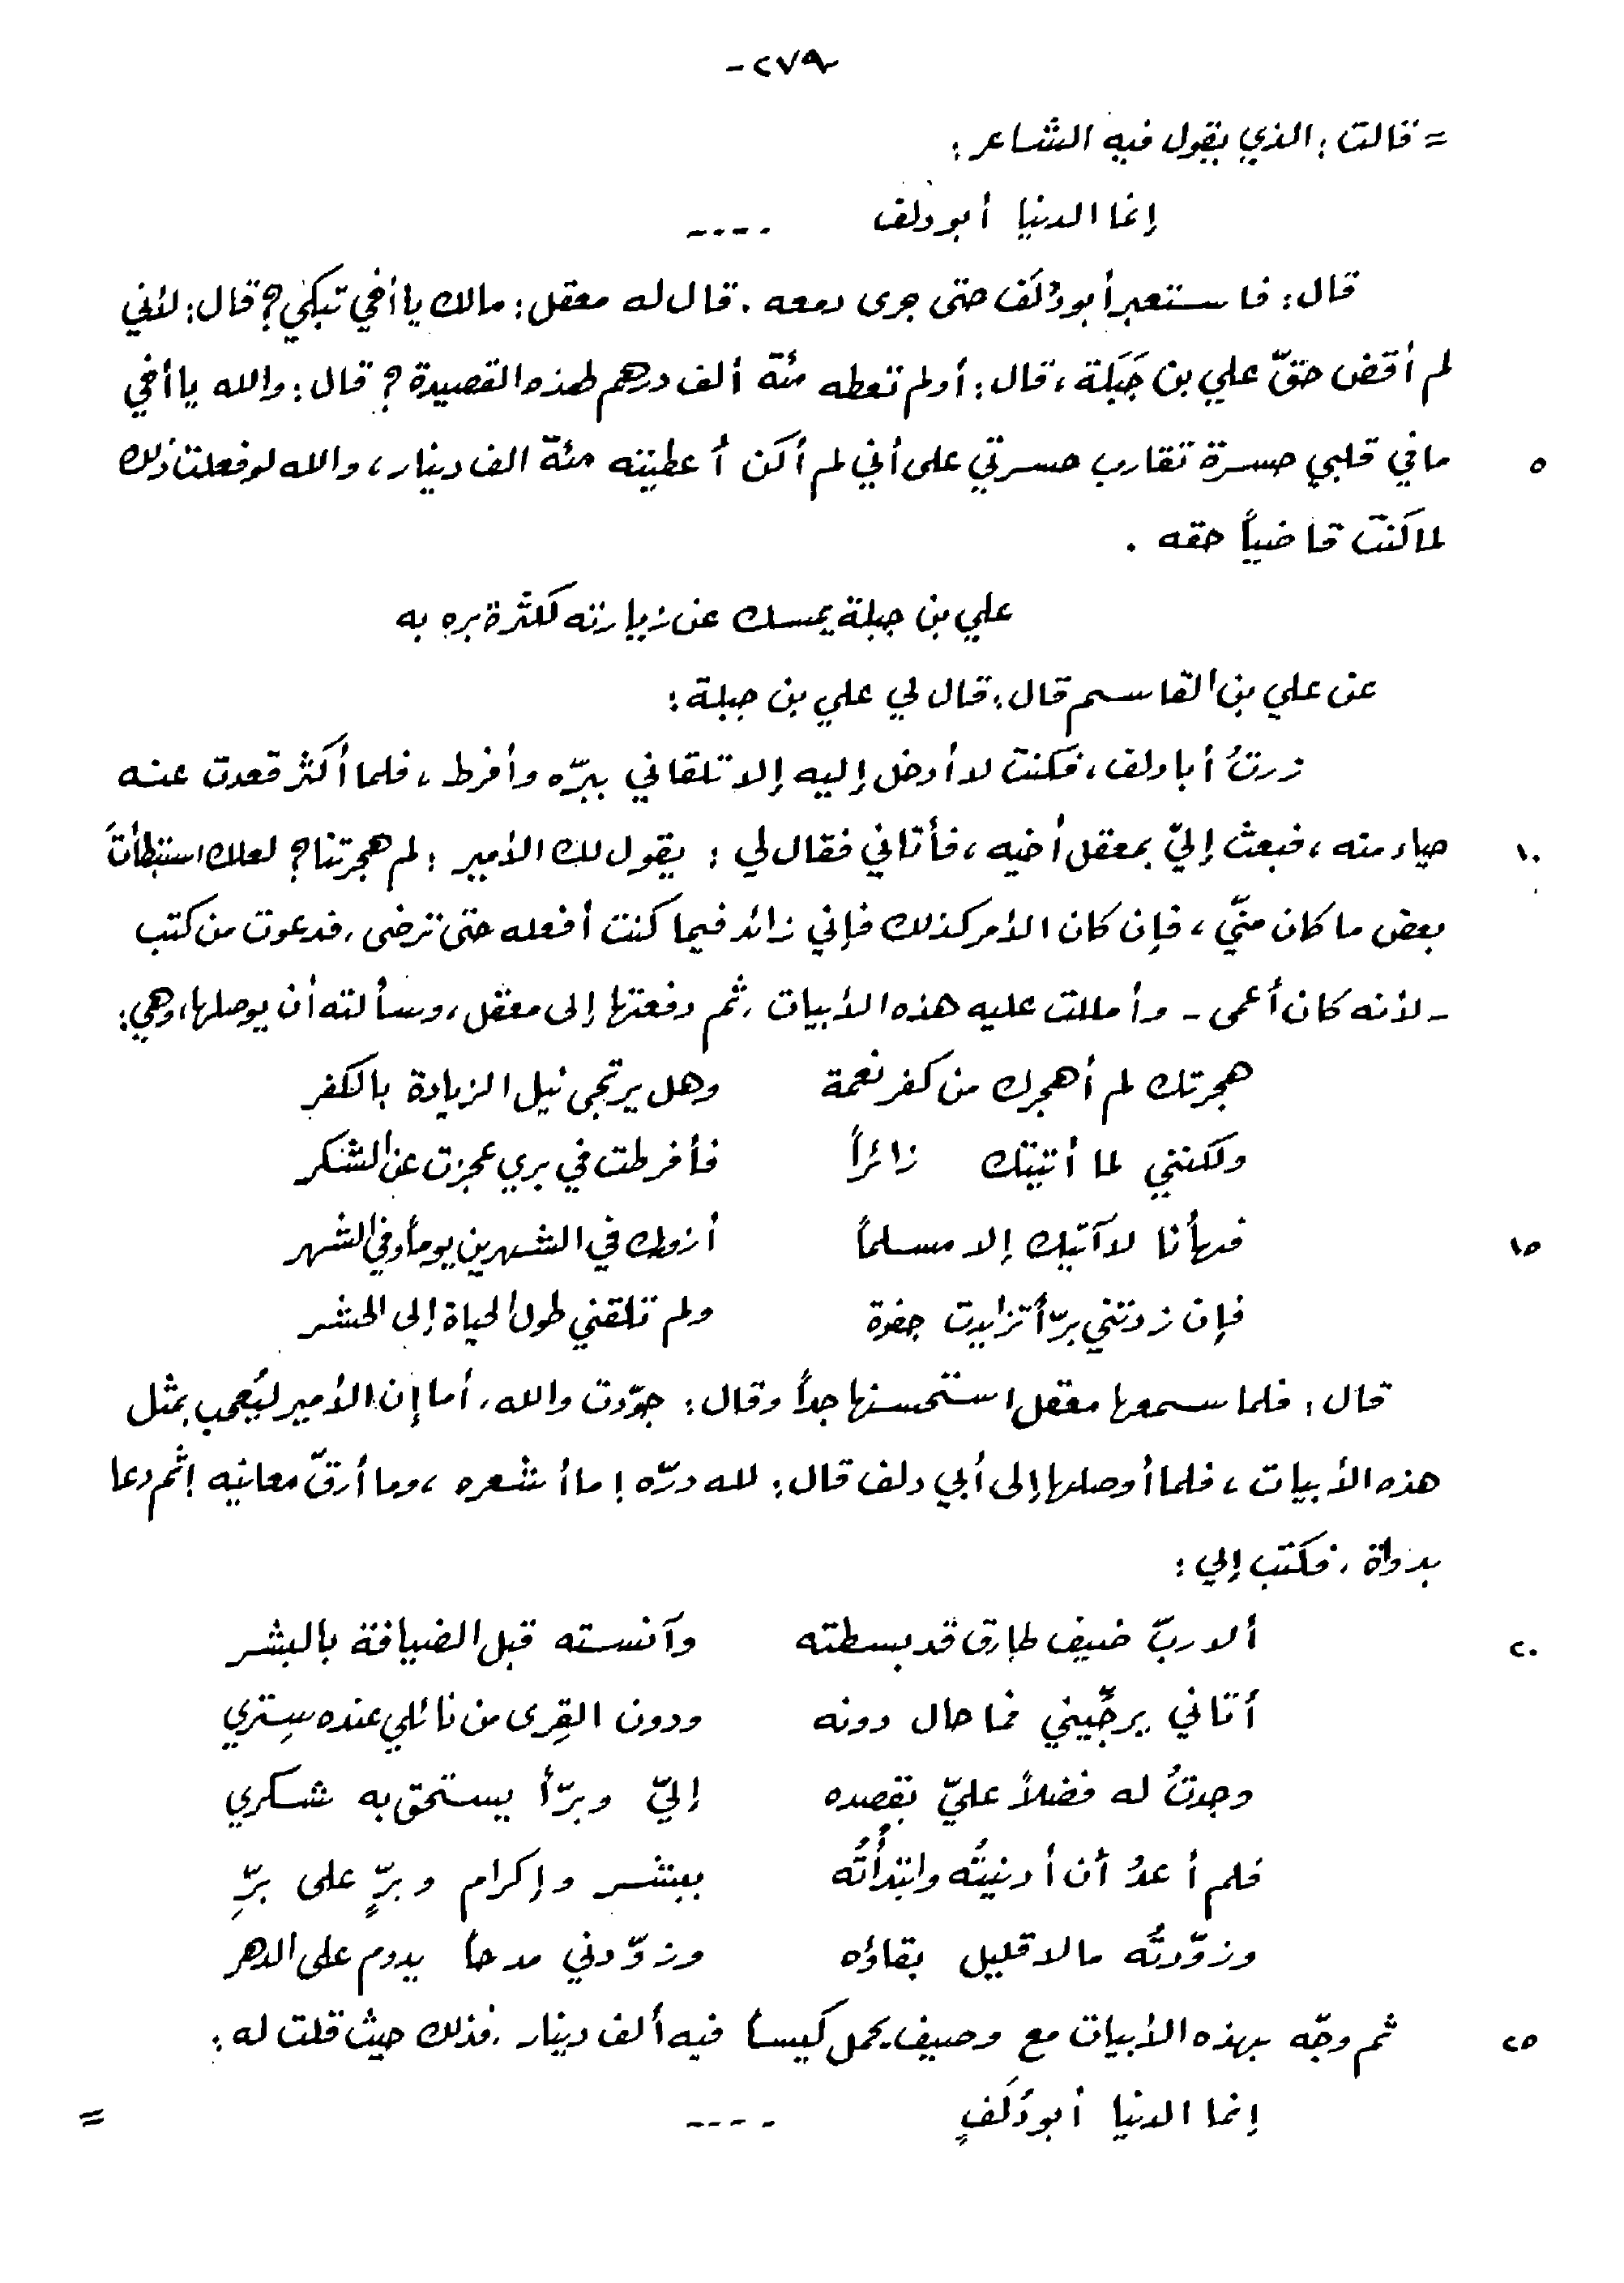 -٢٧٩-
= قالت: الذي يقول فيه الشاعر:
إنما الدنيا أبو دلف ....
قال: فاستعبر أبو دُلَف حتى جرى دمعه. قال له معقل: مالك يا أخي تبكي؟ قال: لأني
لم أقض حقّ علي بن جَبَلة، قال: أولم تعطه مئة ألف درهم لهذه القصيدة؟ قال: والله يا أخي
ما في قلبي حسرة تقارب حسرتي على أني لم أكن أعطيته مئة الف دينار، والله لو فعلت ذلك
٥
لما كنت قاضياً حقه.
علي بن جبلة يمسك عن زيارته لكثرة بره به
عن علي بن القاسم قال: قال لي علي بن جبلة:
زرتُ أبا دلف، فكنت لا أدخل إليه إلا تلقاني ببرّه وأفرط، فلما أكثر قعدت عنه
حياء منه، فبعث إليّ بمعقل أخيه، فأتاني فقال لي: يقول لك الأمير: لم هجرتنا؟ لعلك استبطأتَ
١٠
بعض ما كان منّي، فإن كان الأمر كذلك فإني زائد فيما كنت أفعله حتى ترضى، فدعوت من كتب
- لأنه كان أعمى - وأمللت عليه هذه الأبيات، ثم دفعتها إلى معقل، وسألته أن يوصلها، وهي:
هجرتك لم أهجرك من كفر نعمة وهل يرتجى نيل الزيادة بالكفر
ولكنني لما أتيتك زائراً فأفرطت في بري عجزت عن الشكر
فها أنا لا آتيك إلا مسلماً أزورك في الشهرين يوماً وفي الشهر
١٥
فإن زدتني برّاً تزايدت جفوة ولم تلقني طول الحياة إلى الحشر
قال: فلما سمعها معقل استحسنها جداً وقال: جوّدت والله، أما إن الأمير ليُعجب بمثل
هذه الأبيات، فلما أوصلها إلى أبي دلف قال: لله درّه! ما أشعره، وما أرقّ معانيه! ثم دعا
بدواة، فكتب إلي:
ألا ربّ ضيف طارق قد بسطته وآنسته قبل الضيافة بالبشر
٢٠
أتاني يرجّيني فما حال دونه ودون القِرى من نائلي عنده سِتري
وجدتُ له فضلاً عليّ بقصده إليّ وبرّاً يستحق به شكري
فلم أعدُ أن أدنيتُه وابتدأتُه ببشر وإكرام وبرٍّ على برِّ
وزوّدتُه مالا قليل بقاؤه وزوّدني مدحاً يدوم على الدهر
ثم وجّه بهذه الأبيات مع وصيف يحمل كيساً فيه ألف دينار، فذلك حيث قلت له:
٢٥
إنما الدنيا أبو دُلَفٍ ....
=